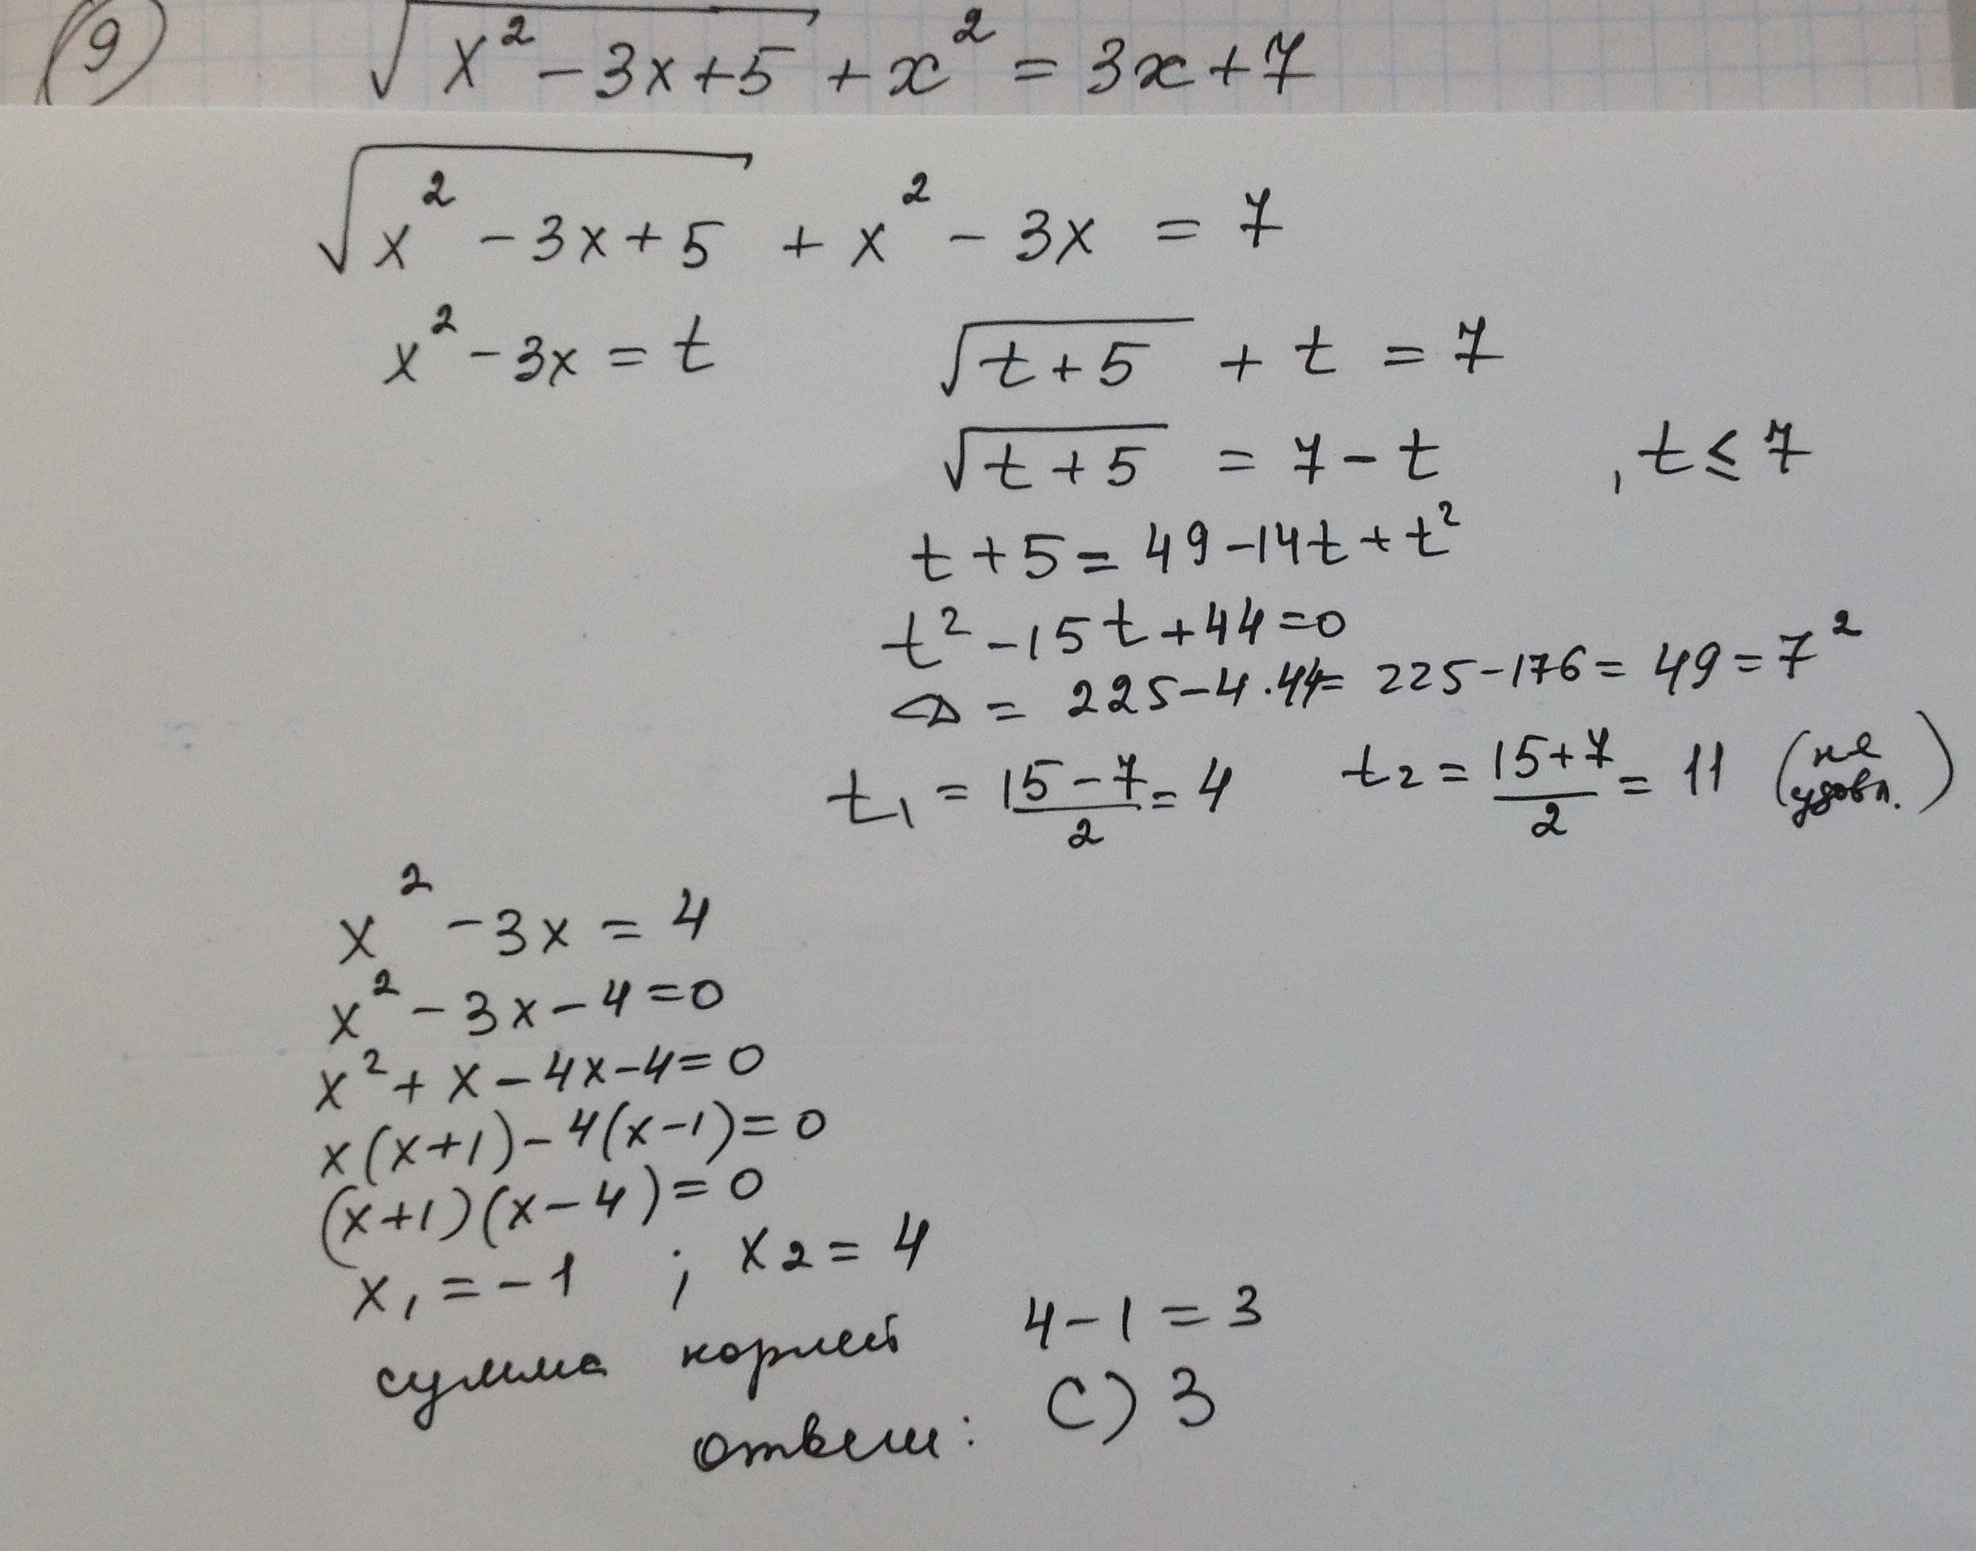 9 √(x² - 3x + 5) + x² = 3x + 7
√(x² - 3x + 5) + x² - 3x = 7
x² - 3x = t √(t + 5) + t = 7
√(t + 5) = 7 - t , t ≤ 7
t + 5 = 49 - 14t + t²
t² - 15t + 44 = 0
D = 225 - 4 · 44 = 225 - 176 = 49 = 7²
t₁ = (15 - 7)/2 = 4 t₂ = (15 + 7)/2 = 11 (не удовл.)
x² - 3x = 4
x² - 3x - 4 = 0
x² + x - 4x - 4 = 0
x(x + 1) - 4(x - 1) = 0
(x + 1)(x - 4) = 0
x₁ = -1 ; x₂ = 4
сумма корней 4 - 1 = 3
ответ: С) 3